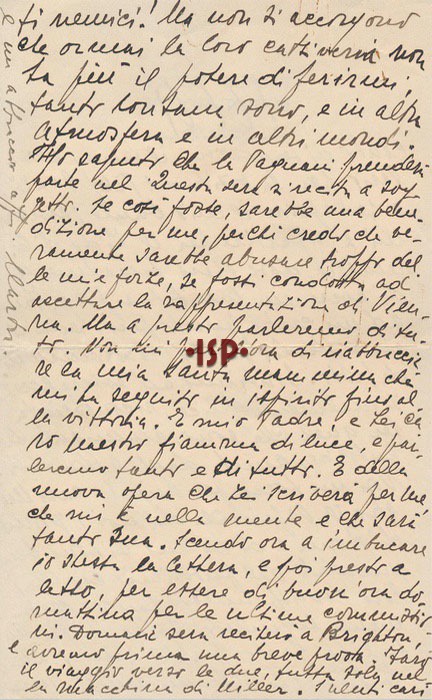 ti nemici! Ma non si accorgono
che ormai la loro cattiveria non
ha più il potere di ferirmi,
tanto lontana sono, e in altra
atmosfera e in altri mondi.
Ho saputo che la Pagnani prenderà
parte nel Questa sera si recita a sog
getto. Se così fosse, sarebbe una bene
dizione per me, perché credo che ve-
ramente sarebbe abusare troppo del
le mie forze, se fossi condotta ad
accettare la rappresentazione di Vien
na. Ma a presto parleremo di tu
tto. Non mi ora di riabbraccia
·ISP·
re la mia santa mammina che
mi ha seguito in ispirito fino al
la vittoria. E mio Padre, e Lei ca
ro Maestro fiamma di luce, e par
leremo tanto e di tutto. E della
nuova opera che Lei scriverà per me,
che mi è nella mente e che sarà
tanto Sua. Scendo ora a imbucare
io stessa la lettera, e poi presto a
letto, per essere di buon'ora do
mattina per le ultime commissio
ni. Domani sera reciterò a Brighton,
e avremo prima una breve prova. Farò
il viaggio verso le due, tutta sola, nel
la macchina di Miller. cari
e un abbraccio aff. Marta.